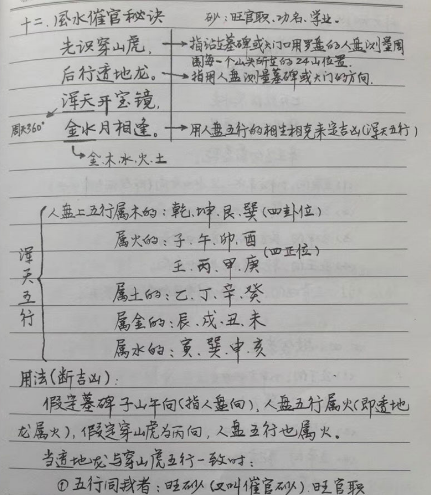 十二.风水催官秘诀 砂:旺官职.功名.学业。
先识穿山虎, →指站在墓碑或大门口用罗盘的人盘测量周
围每一个山头所在的24山位置.
后行透地龙。→指用人盘测量墓碑或大门的方向.
浑天开宝镜,
周天360°
金水月相逢。→用人盘五行的相生相克来定吉凶(浑天五行)
金.木.水.火.土
浑天五行
人盘上五行属木的:乾.坤.艮.巽(四卦位)
属火的:子.午.卯.酉
(四正位)
壬.丙.甲.庚
属土的:乙.丁.辛.癸
属金的:辰.戌.丑.未
属水的:寅.巽.申.亥
用法(断吉凶):
假定墓碑子山午向(指人盘向),人盘五行属火(即透地
龙属火),假定穿山虎为丙向,人盘五行也属火。
当透地龙与穿山虎五行一致时:
①五行同我者:旺砂(又叫催官砂).旺官职